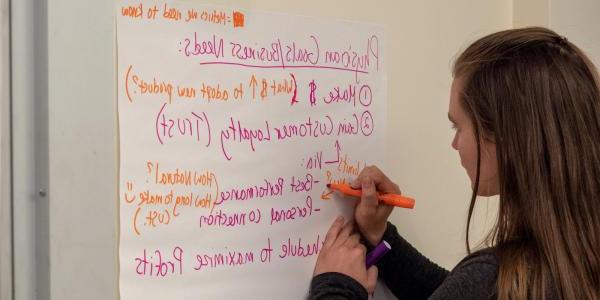 = Metrics we need to know
Physician Goals/Business Needs:
① Make $ (What $ ↑ to adopt new product?)
② Gain Customer Loyalty (Trust)
Via:
- Best Performance (How Natural?
How long to make
- Personal connection cust. ☺)
to maximize Profits